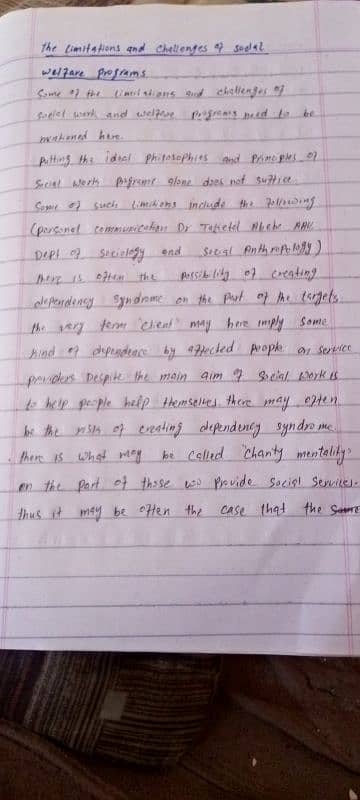 The Limitations and Challenges of social
welfare programs
Some of the limitations and challenges of
social work and welfare programs need to be
mentioned here.
Putting the ideal philosophies and principles of
Social work programs alone does not suffice
Some of such limitions include the following
(personal communication Dr Abebe AAU
DEPT of sociology and Social Anthropology)
there is often the possibility of creating
dependency syndrome on the part of the targets.
the very term "client" may here imply some
kind of dependence by affected people on service
providers Despite the main aim of social work is
to help people help themselves there may often
be the risk of creating dependency syndrome.
there is what may be called "charity mentality"
on the part of those who provide social services.
thus it may be often the case that the some